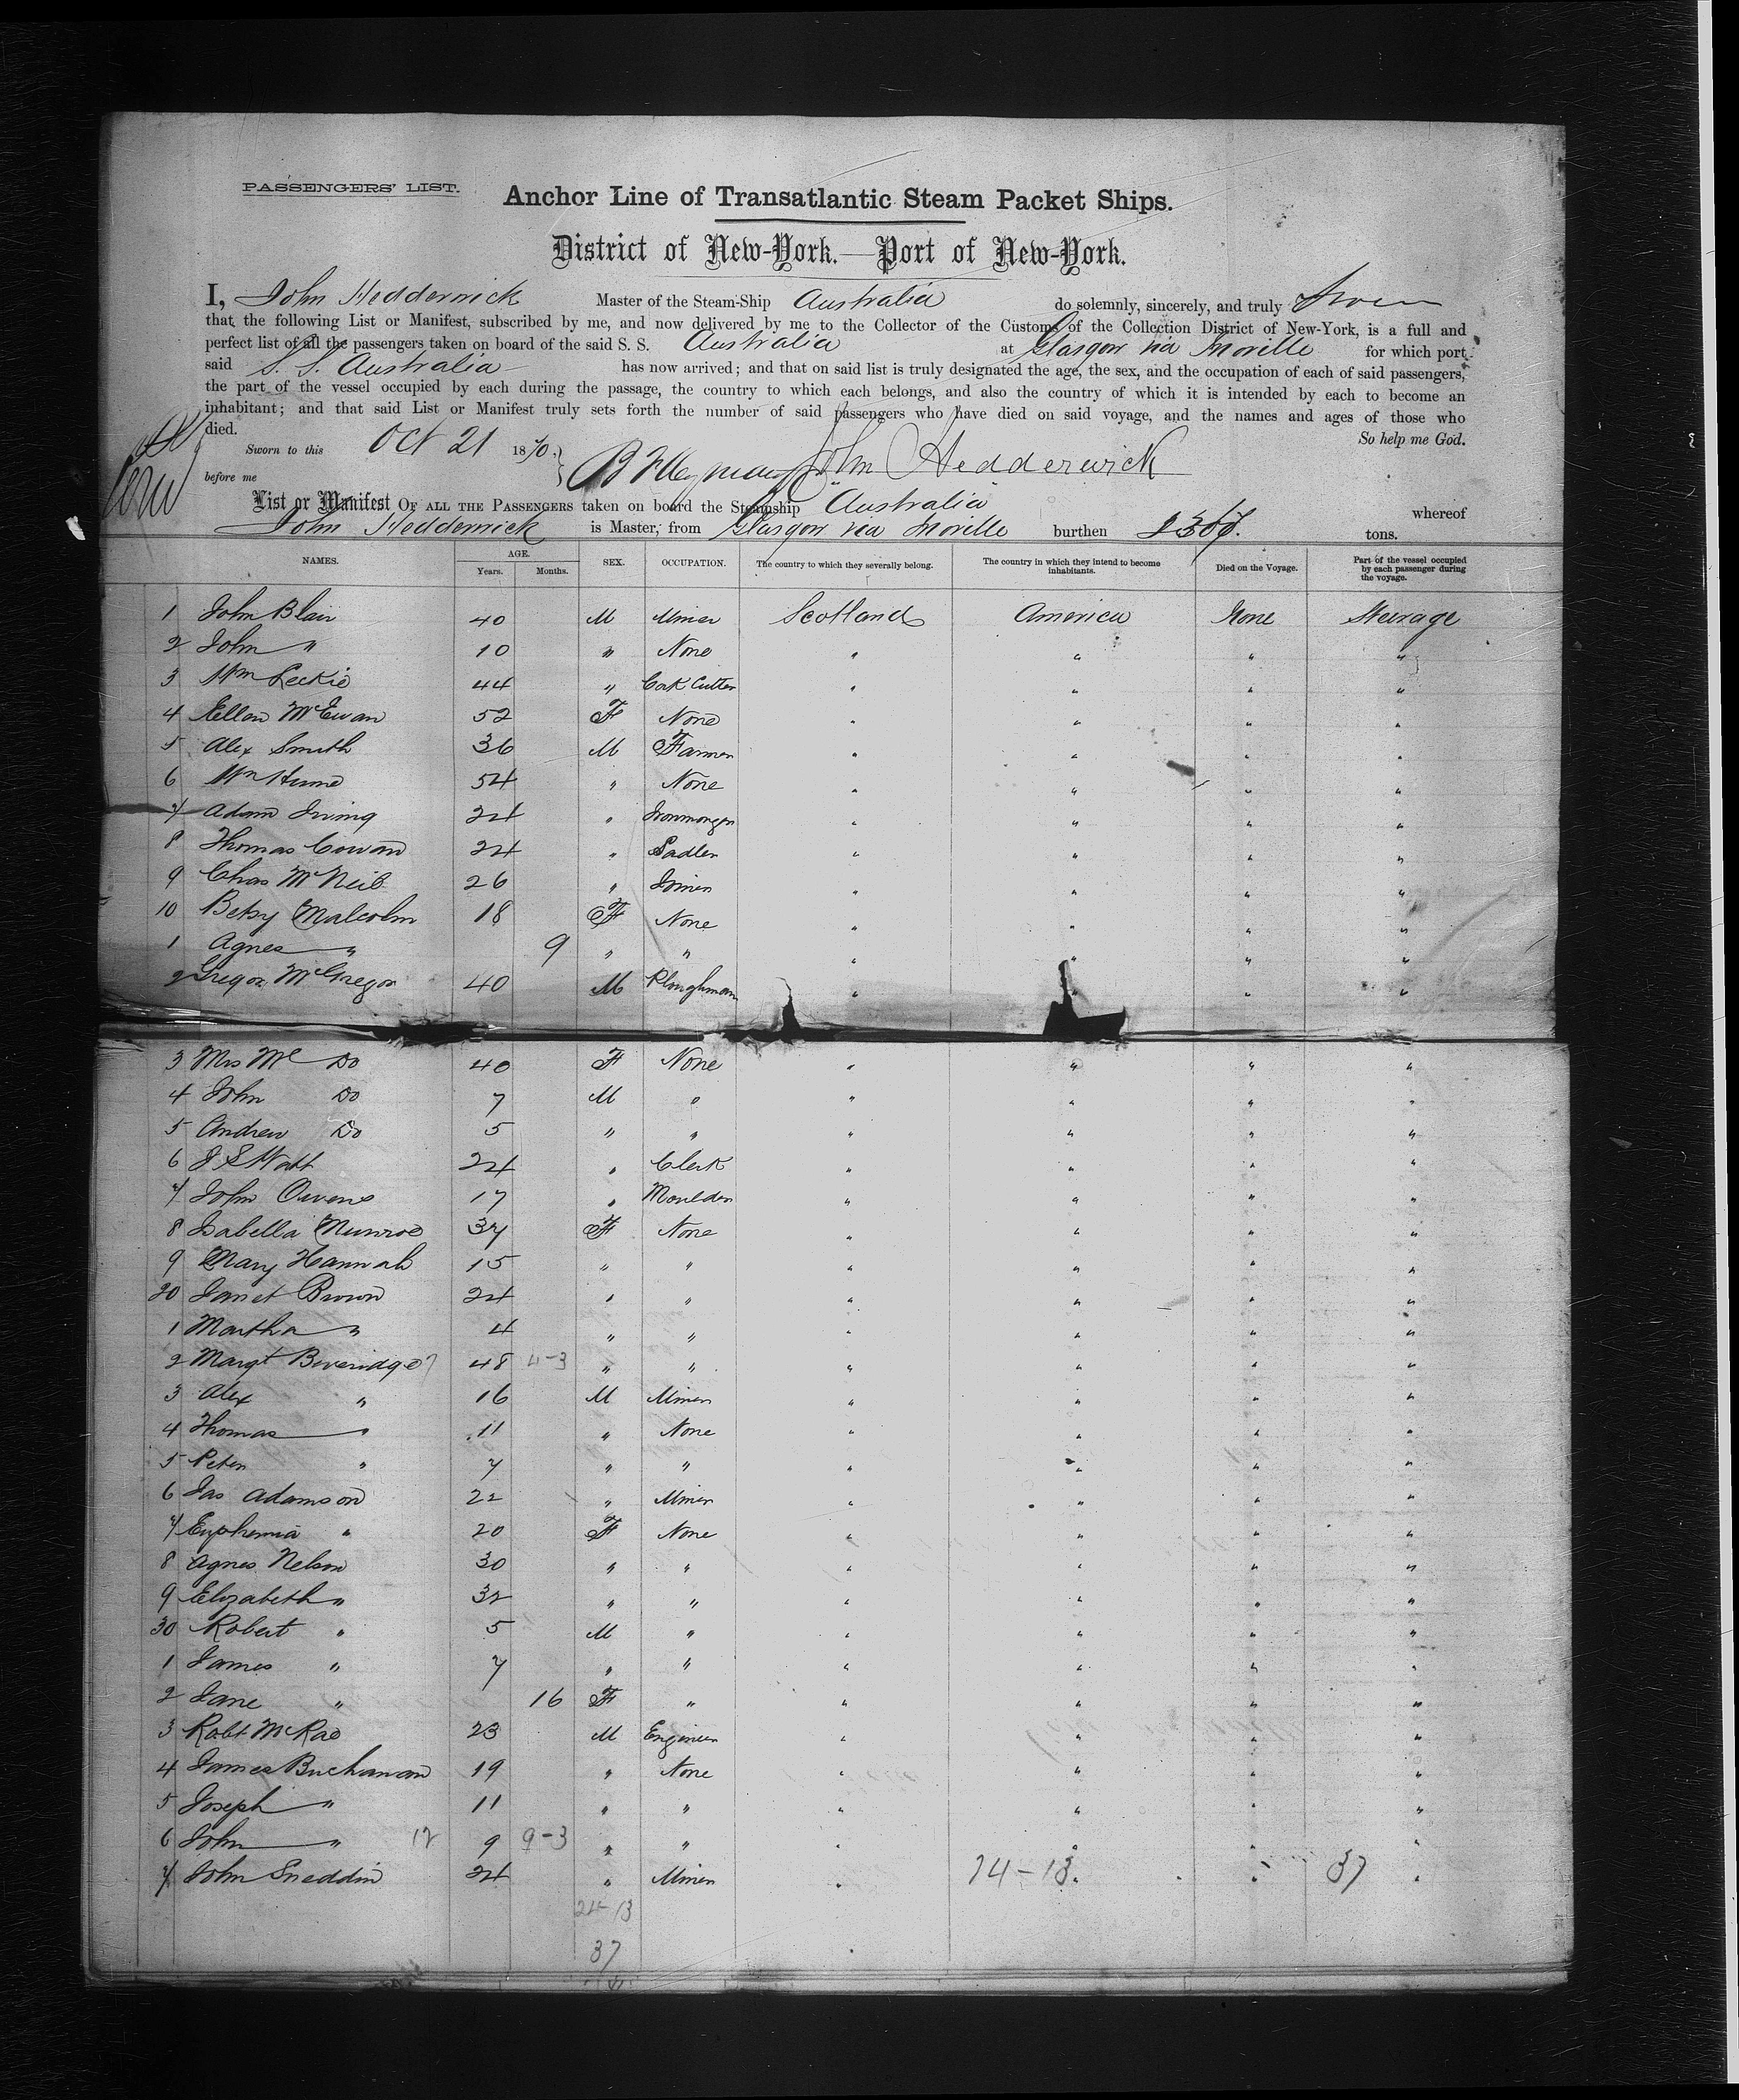 PASSENGERS' LIST.
Anchor Line of Transatlantic Steam Packet Ships.
District of New-York.—Port of New-York.
I, John Hedderwick Master of the Steam-Ship Australia do solemnly, sincerely, and truly Swear
that the following List or Manifest, subscribed by me, and now delivered by me to the Collector of the Customs of the Collection District of New-York, is a full and
perfect list of all the passengers taken on board of the said S. S. Australia at Glasgow via Moville for which port
said S. S. Australia has now arrived; and that on said list is truly designated the age, the sex, and the occupation of each of said passengers,
the part of the vessel occupied by each during the passage, the country to which each belongs, and also the country of which it is intended by each to become an
inhabitant; and that said List or Manifest truly sets forth the number of said passengers who have died on said voyage, and the names and ages of those who
died. So help me God.
Sworn to this Oct 21 1870.
before me John Hedderwick
List or Manifest OF ALL THE PASSENGERS taken on board the Steamship "Australia" whereof
John Hedderwick is Master, from Glasgow via Moville burthen tons.
NAMES. AGE. Years. Months. SEX. OCCUPATION. The country to which they severally belong. The country in which they intend to become inhabitants. Died on the Voyage. Part of the vessel occupied by each passenger during the voyage.
1 John Blair 40 M Miner Scotland America None Steerage
2 John " 10 " None " " " "
3 Wm Leckie 44 " Cork Cutter " " " "
4 Ellen McEwan 52 F None " " " "
5 Alex Smith 36 M Farmer " " " "
6 Wm Hume 54 " None " " " "
7 Adam Irving 24 " Ironmonger " " " "
8 Thomas Cowan 24 " Sadler " " " "
9 Chas McNeil 26 " Joiner " " " "
10 Betsy Malcolm 18 F None " " " "
1 Agnes " 9 " " " " " "
2 Gregor McGregor 40 M Ploughman " " " "
3 Mrs Mc Do 40 F None " " " "
4 John Do 7 M " " " " "
5 Andrew Do 5 " " " " " "
6 J S Watt 24 " Clerk " " " "
7 John Owens 17 " Moulder " " " "
8 Isabella Munroe 37 F None " " " "
9 Mary Hannah 15 " " " " " "
20 Janet Brown 24 " " " " " "
1 Martha " 4 " " " " " "
2 Margt Beveridge 7 48 4-3 " " " " " "
3 Alex " 16 M Miner " " " "
4 Thomas " 11 " None " " " "
5 Peter " 7 " " " " " "
6 Jas Adamson 22 " Miner " " " "
7 Euphemia " 20 F None " " " "
8 Agnes Nelson 30 " " " " " "
9 Elizabeth " 32 " " " " " "
30 Robert " 5 M " " " " "
1 James " 7 " " " " " "
2 Jane " 16 F " " " " "
3 Robt McRae 23 M Engineer " " " "
4 James Buchanan 19 " None " " " "
5 Joseph " 11 " " " " " "
6 John " 12 9 9-3 " " " " " "
7 John Sneddin 24 " Miner " 24-13 " " 37 "
24-13
37